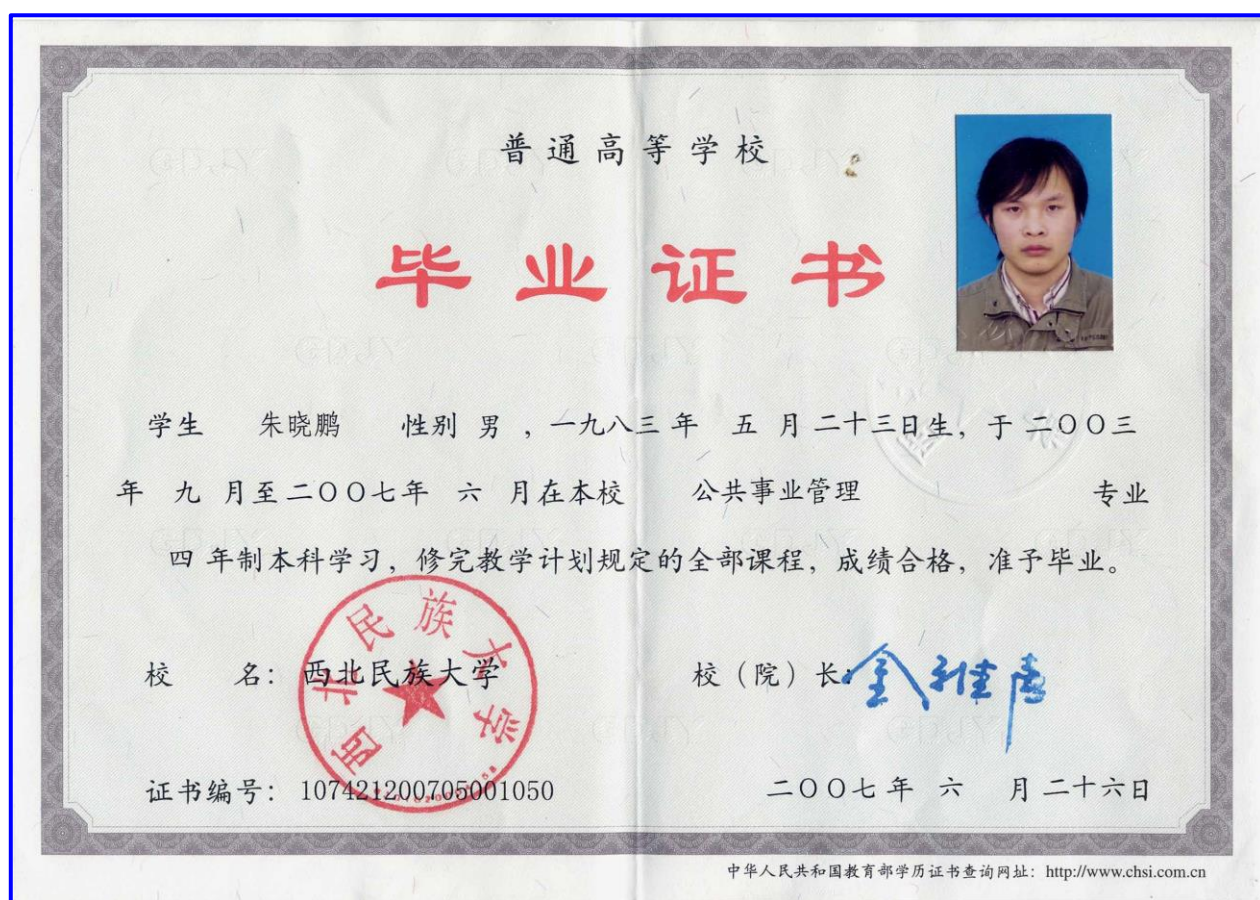 普通高等学校
毕业证书
学生 朱晓鹏 性别 男 ,一九八三 年 五 月 二十三日生, 于 二〇〇三
年 九 月至 二〇〇七年 六 月在本校 公共事业管理 专业
四 年制本科学习, 修完教学计划规定的全部课程, 成绩合格, 准予毕业。
西北民族大学
校 名: 西北民族大学 校（院）长:
证书编号: 107421200705001050 二〇〇七年 六 月 二十六日
中华人民共和国教育部学历证书查询网址: http://www.chsi.com.cn